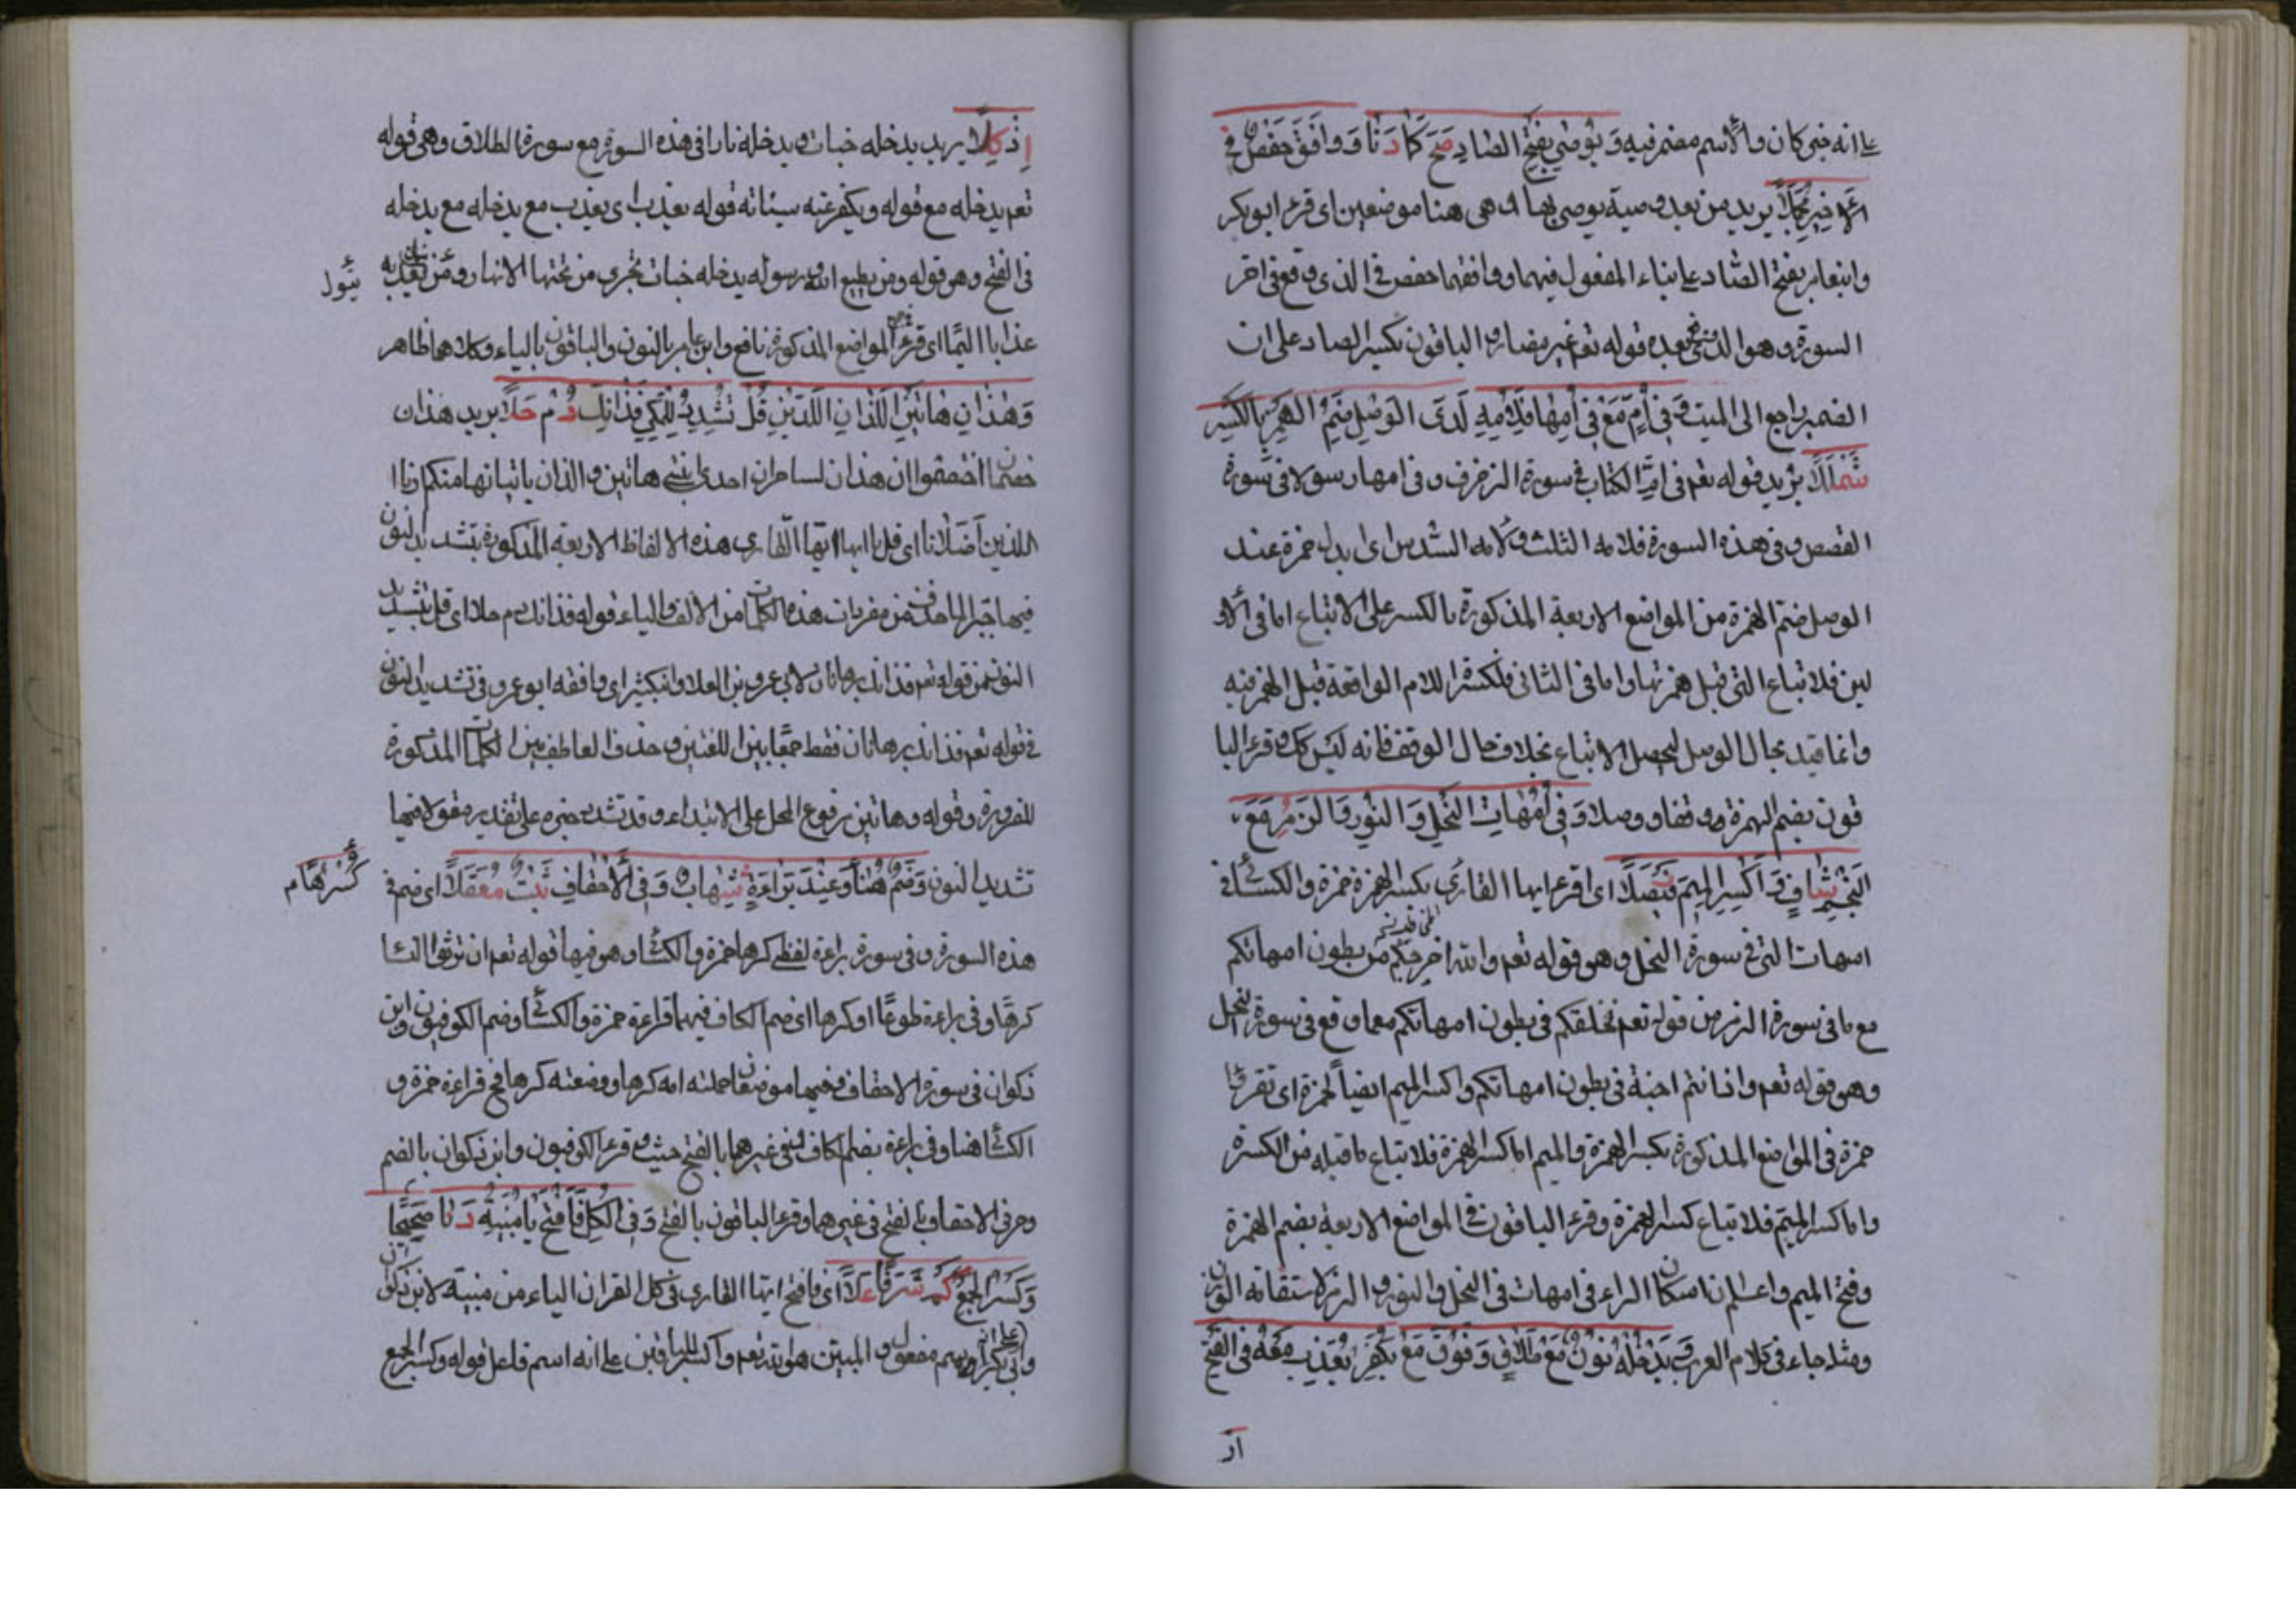 على انه خبر كان والاسم مضمر فيه وَيُوصَى بِفَتْحِ الصَّادِ صَحَّ كَمَا دَنَا وَوَافَقَ حَفْصٌ فِي
الأَخِيرِ مُجَمَّلًا يريد من بعد وصية يوصى بها وهى هنا موضعين اى قرء ابو بكر
وابنعامر بفتح الصاد على بناء المفعول فيهما ووافقهما حفص فى الذى وقع فى اخر
السورة وهو الذى بعده قوله تعم غير مضار والباقون بكسر الصاد على ان
الضمير راجع الى الميت وَفِي أُمِّ مَعْ فِي أُمِّهَا فَلِأُمِّهِ لَدَى الْوَصْلِ ضَمُّ الْهَمْزِ بِالْكَسْرِ
شَمْلَلَا يريد قوله تعم فى ام الكتاب فى سورة الزخرف وفى امها رسولا فى سورة
القصص وفى هذه السورة فلامه الثلث ولامه السدس اى ابدل حمزة عند
الوصل ضم الهمزة من المواضع الاربعة المذكورة بالكسر على الاتباع اما فى الاو
لين فلاتباع التى قبل همزتها واما فى الثانى فلكسرة اللام الواقعة قبل الهمز فيه
وانما قيد بحال الوصل ليحصل الاتباع بخلاف حال الوقف فانه ليس كك وقرء البا
قون بضم الهمزة وقفا ووصلا وَفِي أُمَّهَاتِ النَّحْلِ وَالنُّورِ وَالزُّمَرْ مَعَ
النَّجْمِ شَافٍ وَاكْسِرِ الْمِيمَ فَيْصَلَا اى اقرء ايها القارى بكسر الهمزة حمزة والكسائى فى
امهات التى فى سورة النحل وهو قوله تعم والله اخرجكم من بطون امهاتكم
مع ما فى سورة الزمر من قوله تعم يخلقكم فى بطون امهاتكم مع ما وقع فى سورة النجم
وهو قوله تعم واذ انتم اجنة فى بطون امهاتكم واكسر الميم ايضا لحمزة اى تقرء
حمزة فى المواضع المذكورة بكسر الهمزة والميم اما كسر الهمزة فلاتباع ما قبله من الكسرة
واما كسر الميم فلاتباع كسر الهمزة وقرء الباقون فى المواضع الاربعة بضم الهمزة
وفتح الميم واعلم ان اسكان الراء فى امهات فى النحل والنور والزمر لاستقامة الوزن
ومثله جاء فى كلام العرب يُدْخِلْهُ نُونٌ مَعْ طَلَاقٍ وَفَوْقُ مَعْ يُكَفِّرْ يُعَذِّبْ مَعْهُ فِي الْفَتْحِ
اذ
إِذْ كَلَا يريد يدخله جنات ويدخله نارا فى هذه السورة مع سورة الطلاق وهى قوله
تعم يدخله مع قوله ويكفر عنه سيئاته قوله يعذب اى يعذب مع يدخله مع يدخله
فى الفتح وهو قوله ومن يطع الله ورسوله يدخله جنات تجرى من تحتها الانهار ومن يتول يعذبه
عذابا اليما اى قرء المواضع المذكورة نافع وابن عامر بالنون والباقون بالياء وكلاهما ظاهر
وَهَذَانِ هَاتَيْنِ اللَّذَانِ اللَّذَيْنِ قُلْ تُشَدَّدُ لِلْمَكِّي فَذَانِكَ دُمْ حَلَا يريد هذان
خصمان اختصموا ان هذان لساحران احدى ابنتى هاتين والذان ياتيانها منكم ارنا
اللذين اضلانا اى قل يا ايها القارى هذه الالفاظ الاربعة المذكورة بتشديد النون
فيها جبرا لما حذف من مفردات هذه الكلمات من الالف والياء قوله فذانك دم حلا اى قل بتشديد
النون من قوله تعم فذانك برهانان لابى عمرو بن العلا وابنكثير اى وافقه ابو عمرو فى تشديد النون
فى قوله تعم فذانك برهانان فقط جمعا بين اللغتين وحذف العاطف بين الكلمات المذكورة
للضرورة وقوله وهاتين مرفوع المحل على الابتداء وقد تشدد خبره على تقدير مقولا فيها
تشديد النون وَضَمَّ هُنَا كَرْهًا وَعِنْدَ بَرَاءَةٍ شِهَابٌ وَفِي الأَحْقَافِ ثُبِّتَ مَعْقِلَا اى ضم فى
هذه السورة وفى سورة براءة لفظ كرها حمزة والكسائى وهو فيها قوله تعم ان ترثوا النسا
كرها وفى براءة طوعا او كرها اى ضم الكاف فيهما قراءة حمزة والكسائى وضم الكوفيون وابن
ذكوان فى سورة الاحقاف وفيها موضعان حملته امه كرها ووضعته كرها فى قراءة حمزة و
الكسائى هنا وفى براءة بضم الكاف وفى غيرهما بالفتح حيث وقرء الكوفيون وابن ذكوان بالضم
فى الاحقاف بالفتح فى غيرهما وقرء الباقون بالفتح وَفِي الْكُلِّ فَافْتَحْ يَا مُبَيِّنَةٍ دَنَا صَحِيحًا
وَكَسْرُ الْجَمْعِ كَمْ شَرَفًا عَلَا اى فافتح ايها القارى فى كل القران الياء من مبينة لابن كثير
وابى بكر على انه اسم مفعول والمبين هو الله تعم واكسر للباقين على انه اسم فاعل قوله وكسر الجمع